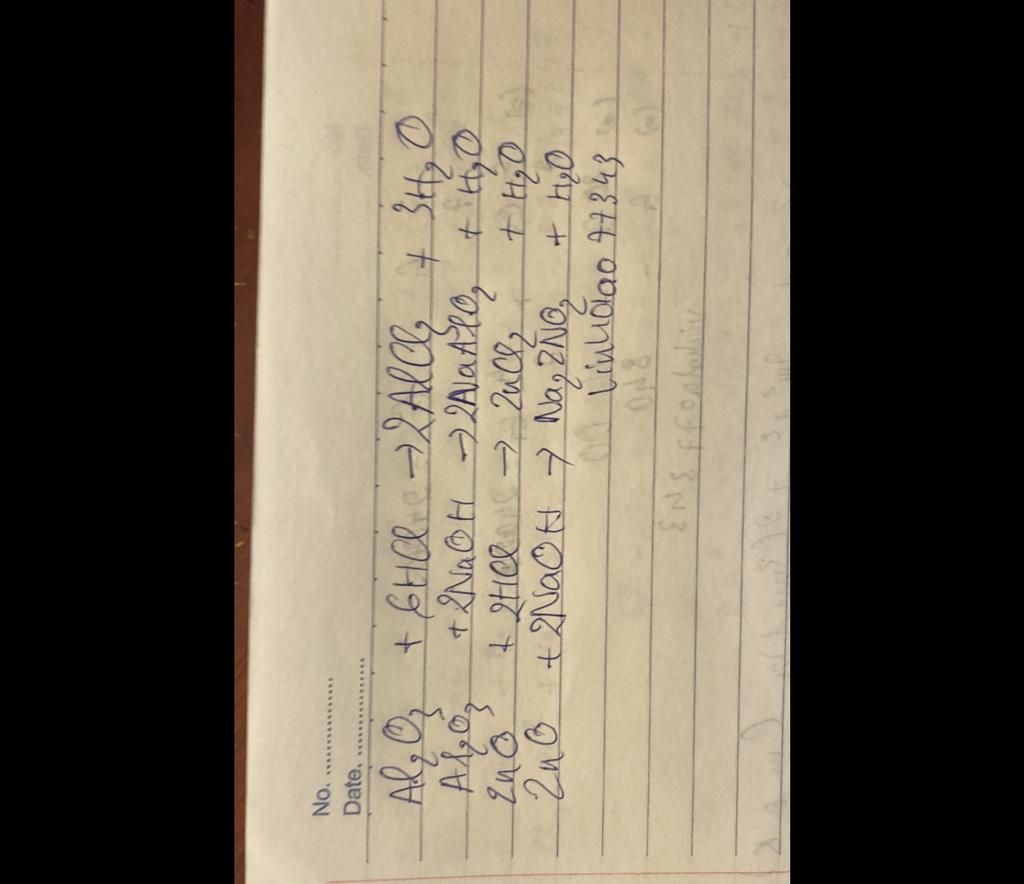 No. ................
Date. ................
Al₂O₃ + 6HCl → 2AlCl₃ + 3H₂O
Al₂O₃ + 2NaOH → 2NaAlO₂ + H₂O
ZnO + 2HCl → ZnCl₂ + H₂O
ZnO + 2NaOH → Na₂ZnO₂ + H₂O